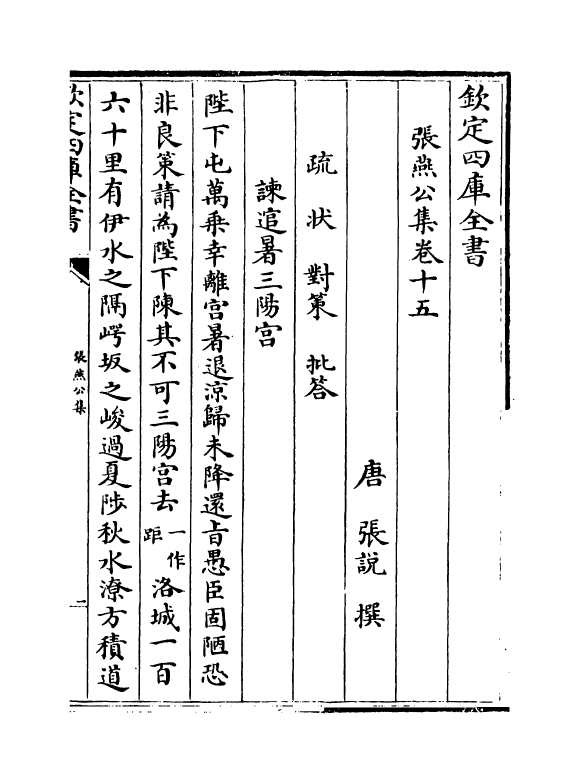 欽定四庫全書
張燕公集卷十五
唐 張說 撰
疏 狀 對策 批答
諫逭暑三陽宮
陛下屯萬乗幸離宮暑退涼歸未降還㫖愚臣固陋恐
非良策請為陛下陳其不可三陽宮去一作距洛城一百
六十里有伊水之隔崿坂之峻過夏陟秋水潦方積道
欽定四庫全書
張燕公集